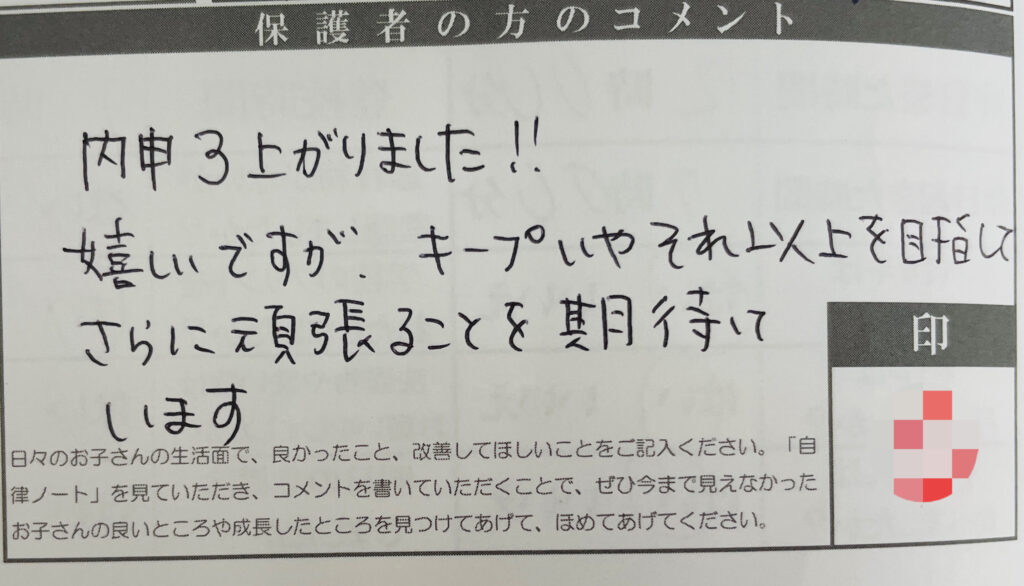 保護者の方のコメント
内申3上がりました!!
嬉しいですが、キープいやそれ以上を目指して
さらに頑張ることを期待して
います
印
日々のお子さんの生活面で、良かったこと、改善してほしいことをご記入ください。「自
律ノート」を見ていただき、コメントを書いていただくことで、ぜひ今まで見えなかった
お子さんの良いところや成長したところを見つけてあげて、ほめてあげてください。